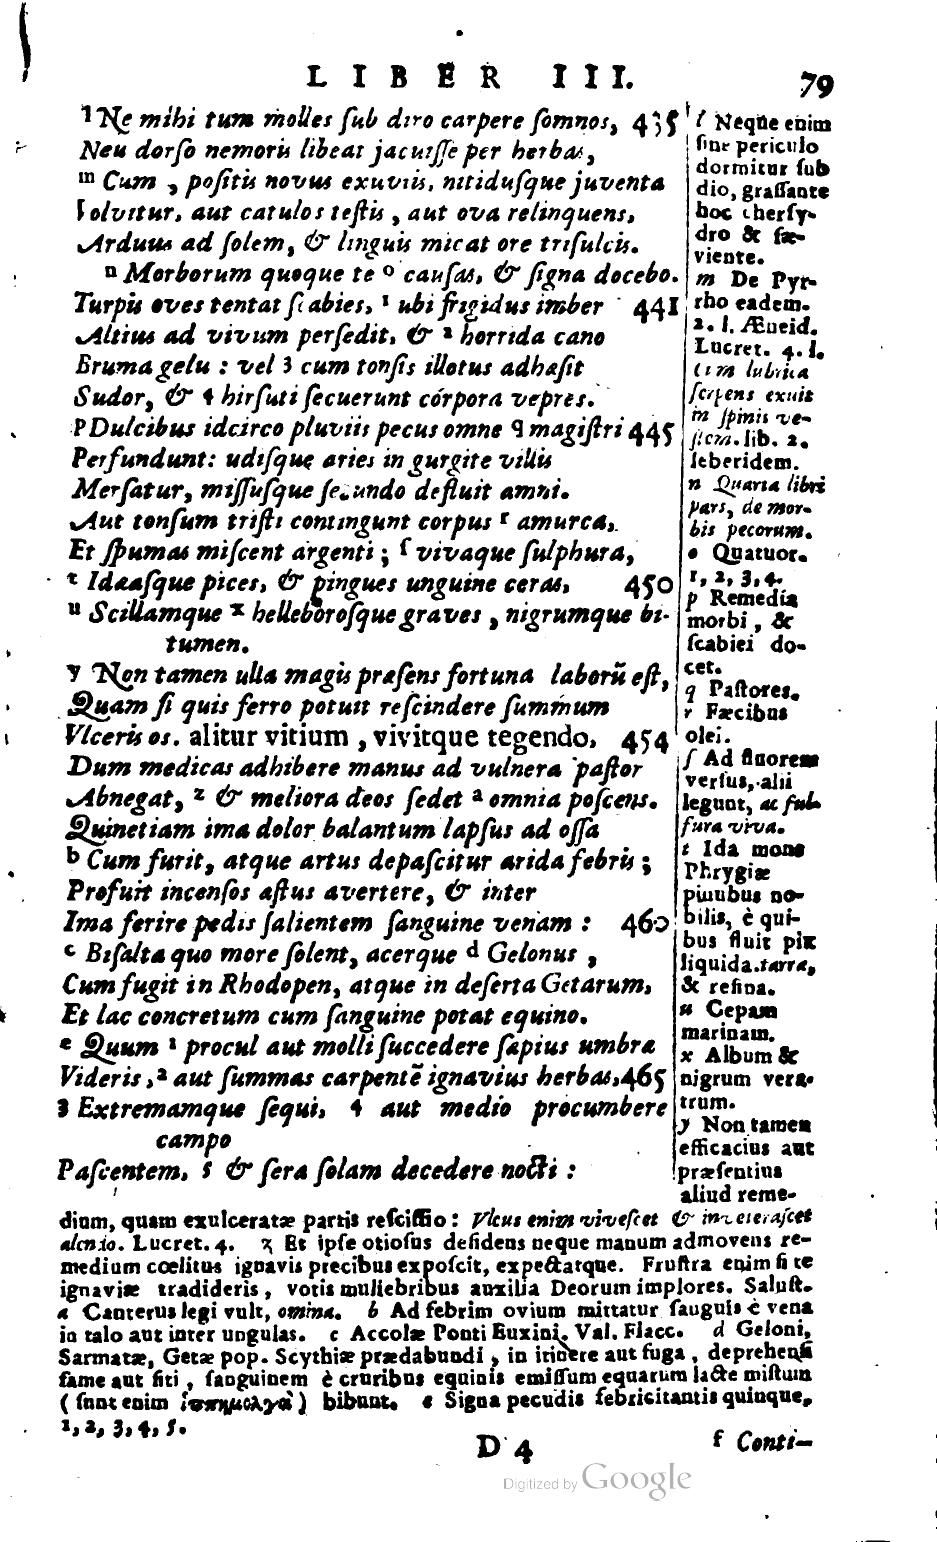 LIBER III. 79
l Ne mihi tum molles ſub diro carpere ſomnos, 435
Neu dorſo nemoris libeat jacuiſſe per herbas,
m Cum, poſitis novus exuviis, nitiduſque juventa
Volvitur, aut catulos teſtis, aut ova relinquens,
Arduus ad ſolem, & linguis micat ore triſulcis.
n Morborum quoque te o cauſas, & ſigna docebo.
Turpis oves tentat ſcabies, 1 ubi frigidus imber 441
Altius ad vivum perſedit, & 2 horrida cano
Bruma gelu: vel 3 cum tonſis illotus adhæſit
Sudor, & 4 hirſuti ſecuerunt córpora vepres.
p Dulcibus idcirco pluviis pecus omne q magiſtri 445
Perfundunt: udiſque aries in gurgite villis
Merſatur, miſſuſque ſecundo defluit amni.
Aut tonſum triſti contingunt corpus r amurca,
Et ſpumas miſcent argenti; ſ vivaque ſulphura,
t Idæaſque pices, & pingues unguine ceras, 450
u Scillamque x helleboroſque graves, nigrumque bi-
tumen.
y Non tamen ulla magis præſens fortuna laborũ eſt,
Quam ſi quis ferro potuit reſcindere ſummum
Vlceris os. alitur vitium, vivitque tegendo, 454
Dum medicas adhibere manus ad vulnera paſtor
Abnegat, z & meliora deos ſedet a omnia poſcens.
Quinetiam ima dolor balantum lapſus ad oſſa
b Cum furit, atque artus depaſcitur arida febris;
Profuit incenſos æſtus avertere, & inter
Ima ferire pedis ſalientem ſanguine venam: 460
c Biſaltæ quo more ſolent, acerque d Gelonus,
Cum fugit in Rhodopen, atque in deſerta Getarum,
Et lac concretum cum ſanguine potat equino.
e Quum 1 procul aut molli ſuccedere ſæpius umbræ
Videris, 2 aut ſummas carpentẽ ignavius herbas, 465
3 Extremamque ſequi, 4 aut medio procumbere
campo
Paſcentem, 5 & ſera ſolam decedere nocti:
l Neque enim
ſine periculo
dormitur ſub
dio, graſſante
hoc cherſy-
dro & ſæ-
viente.
m De Pyr-
rho eadem.
2. l. Æneid.
Lucret. 4. l.
cum lubrica
ſerpens exuit
in ſpinis ve-
ſtem. lib. 2.
ſeberidem.
n Quarta libri
pars, de mor-
bis pecorum.
o Quatuor.
1, 2, 3, 4.
p Remedia
morbi, &
ſcabiei do-
cet.
q Paſtores.
r Fæcibus
olei.
ſ Ad fluorem
verſus, alii
legunt, ac ſul-
fura viva.
t Ida mons
Phrygiæ
pinubus no-
bilis, è qui-
bus fluit pix
liquida. tarra,
& reſina.
u Cepam
marinam.
x Album &
nigrum vera-
trum.
y Non tamen
efficacius aut
præſentius
aliud reme-
dium, quam exulceratæ partis reſciſſio: Vlcus enim viveſcet & inveteraſcet
alendo. Lucret. 4. z Et ipſe otioſus deſidens neque manum admovens re-
medium cœlitus ignavis precibus expoſcit, expectatque. Fruſtra enim ſi te
ignaviæ tradideris, votis muliebribus auxilia Deorum implores. Saluſt.
a Canterus legi vult, omina. b Ad febrim ovium mittatur ſanguis è vena
in talo aut inter ungulas. c Accolæ Ponti Euxini, Val. Flacc. d Geloni,
Sarmatæ, Getæ pop. Scythiæ prædabundi, in itinere aut fuga, deprehenſi
fame aut ſiti, ſanguinem è cruribus equinis emiſſum equarum lacte miſtum
(ſunt enim ἱππημολγοὶ) bibunt. e Signa pecudis febricitantis quinque,
1, 2, 3, 4, 5.
D 4 f Conti-
Digitized by Google